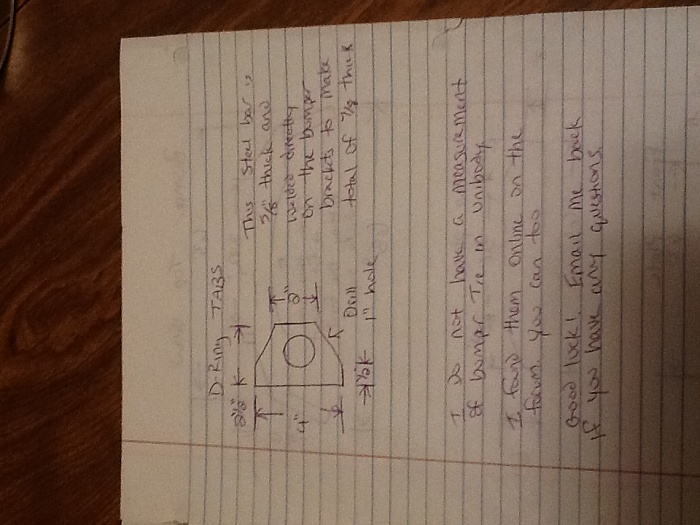 D-Ring TABS
2½"
This steel bar is
5/8" thick and
welded directly
on the bumper
brackets to make
total of 7/8 thick
2"
4"
Drill
1" hole
1½
I Do not have a measurement
of bumper Tie in unibody
I found them online on the
forum. you can too
Good luck! Email me back
if you have any questions.